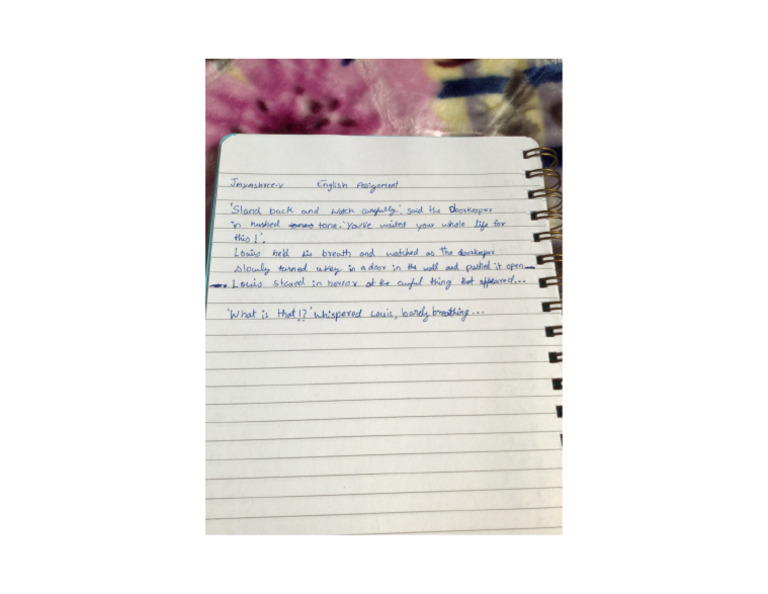 Jayashree.v English Assignment
'Stand back and watch carefully', said the Doorkeeper
in hushed tone. 'You've waited your whole life for
this!'.
Louis held his breath and watched as The doorkeeper
slowly turned a key in a door in the wall and pushed it open
Louis stared in horror at the awful thing that appeared...
'What is that!?' whispered Louis, barely breathing...